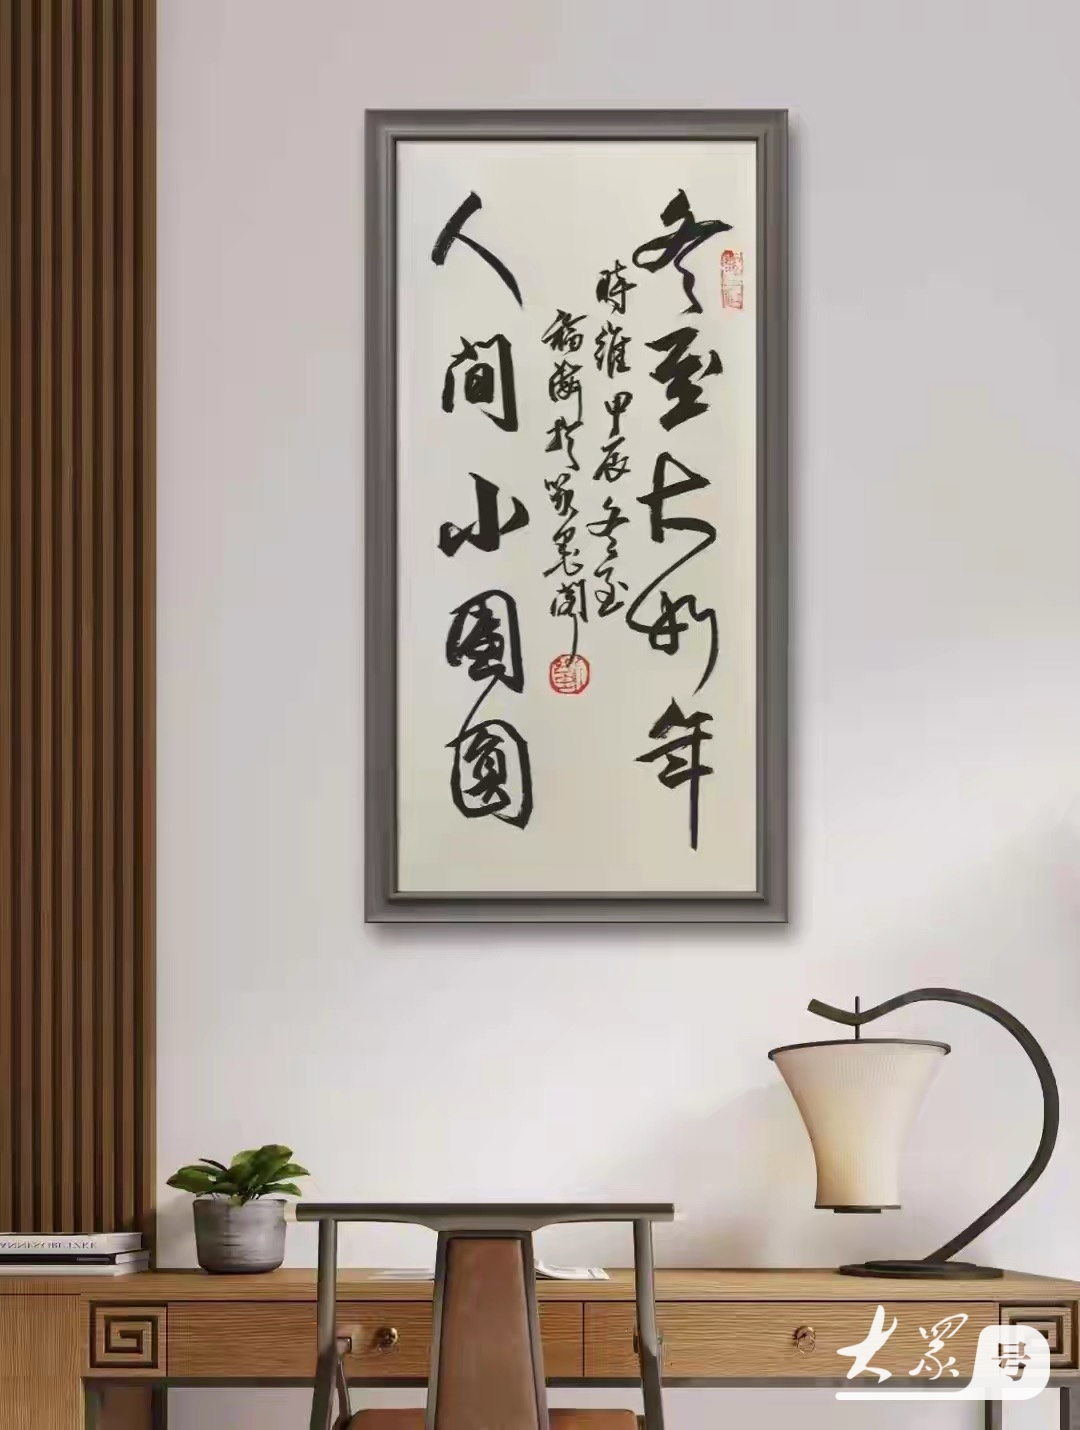 冬至大如年
時維甲辰冬至
福海於墨閣
人间小團圓
大眾号